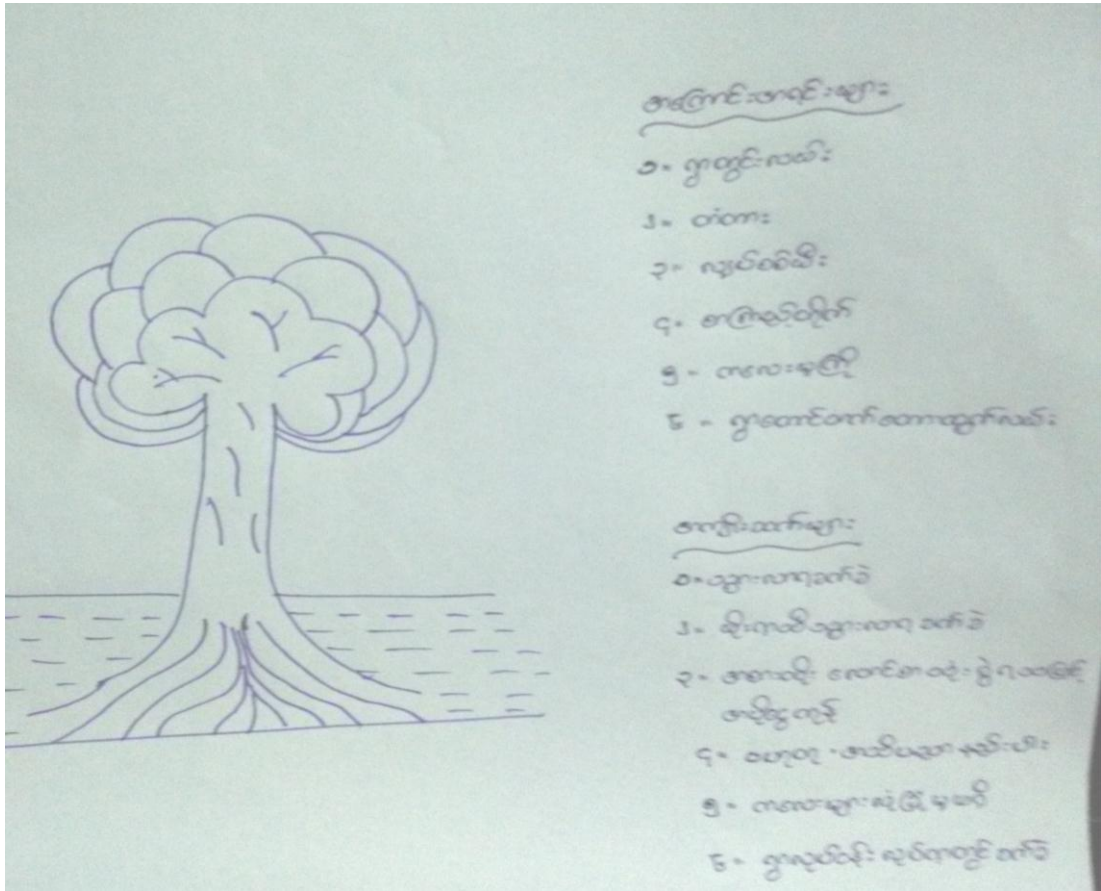 အကြောင်းအရင်းများ
၁= ရွာတွင်းလမ်း
၂= တံတား
၃= လျှပ်စစ်မီး
၄= စာကြည့်တိုက်
၅= ကလေးမူကြို
၆= ရွာတောင်ဘက်တောထွက်လမ်း
အကျိုးဆက်များ
၁= သွားလာရခက်ခဲ
၂= ဆိုးရွာသို့သွားလာရခက်ခဲ
၃= အစားထိုး လောင်စာသုံးစွဲရသဖြင့်
အပိုငွေကုန်
၄= ဗဟုသုတ အသိပညာနည်းပါး
၅= ကလေးများလုံခြုံမှုမရှိ
၆= ရွာလုပ်ငန်း လုပ်ရာတွင်ခက်ခဲ